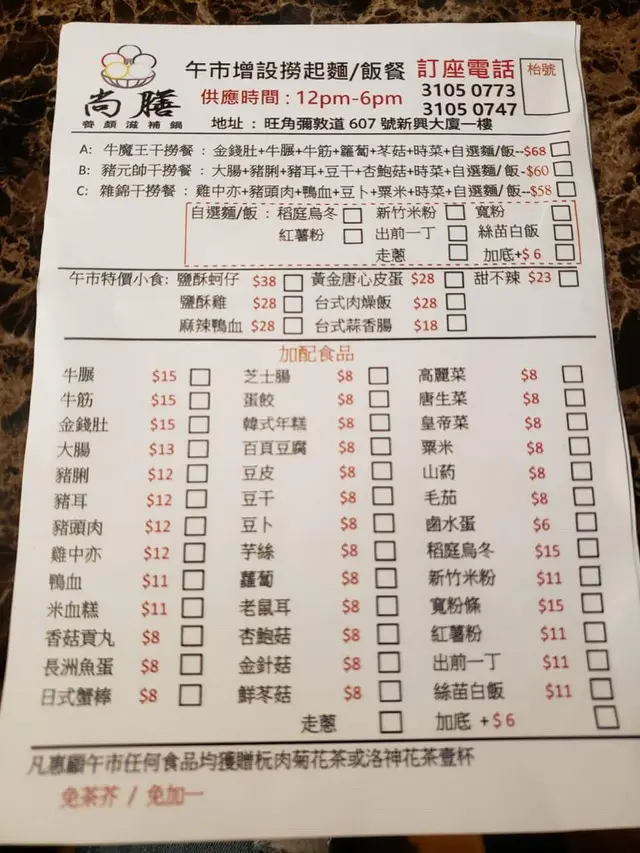 尚膳
養顏滋補鍋
午市增設撈起麵/飯餐 訂座電話 枱號
供應時間 : 12pm-6pm 3105 0773
3105 0747
地址 : 旺角彌敦道 607 號新興大廈一樓
A: 牛魔王干撈餐 : 金錢肚+牛𦟌+牛筋+蘿蔔+冬菇+時菜+自選麵/飯--$68
B: 豬元帥干撈餐 : 大腸+豬脷+豬耳+豆干+杏鮑菇+時菜+自選麵/飯-$60
C: 雜錦干撈餐 : 雞中亦+豬頭肉+鴨血+豆卜+粟米+時菜+自選麵/飯-$58
自選麵/飯 : 稻庭烏冬 新竹米粉 寬粉
紅薯粉 出前一丁 絲苗白飯
走蔥 加底+$ 6
午市特價小食: 鹽酥蚵仔 $38 黃金唐心皮蛋 $28 甜不辣 $23
鹽酥雞 $28 台式肉燥飯 $28
麻辣鴨血 $28 台式蒜香腸 $18
加配食品
牛𦟌 $15 芝士腸 $8 高麗菜 $8
牛筋 $15 蛋餃 $8 唐生菜 $8
金錢肚 $15 韓式年糕 $8 皇帝菜 $8
大腸 $13 百頁豆腐 $8 粟米 $8
豬脷 $12 豆皮 $8 山药 $8
豬耳 $12 豆干 $8 毛茄 $8
豬頭肉 $12 豆卜 $8 鹵水蛋 $6
雞中亦 $12 芋絲 $8 稻庭烏冬 $15
鴨血 $11 蘿蔔 $8 新竹米粉 $11
米血糕 $11 老鼠耳 $8 寬粉條 $15
香菇貢丸 $8 杏鮑菇 $8 紅薯粉 $11
長洲魚蛋 $8 金針菇 $8 出前一丁 $11
日式蟹棒 $8 鮮冬菇 $8 絲苗白飯 $11
走蔥 加底 +$ 6
凡惠顧午市任何食品均獲贈杬肉菊花茶或洛神花茶壹杯
免茶芥 / 免加一